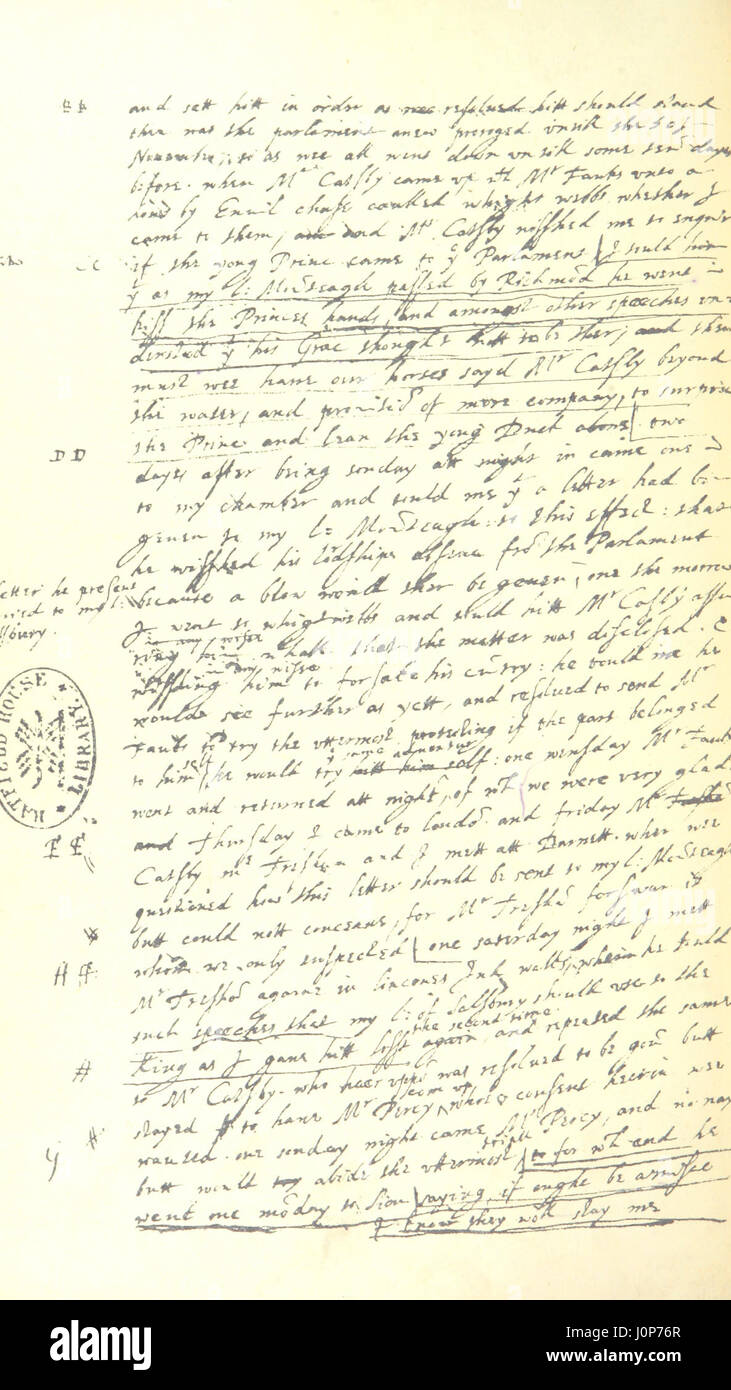 and sett hitt in order as wee resolued hitt should stand
then was the parliament anew proroged vntill the 5 of
Nouember, so as wee all went down vntill some ten days
before. when Mr Catesby came vp wth Mr Fauks vnto a
by Enuil chase caulled whight webbs whether I
came to them, and Mr Catesby wisshed me to enquir
if the yong Prince came to ye Parlament I tould him
CC
yt as my l: Mounteagle passed by Richmōd he went
kiss the Princes hands, and amongst other speches
yt his Grac thought nott to be ther, and then
must wee haue our horses sayd Mr Catsby beyond
the water, and prouisiō of more company, to surprise
the Prince and leau the yong Duck alone two
DD
days after being sonday att night in came one
to my chamber and tould me yt a letter had been
geuen to my l: Mounteagle to this effect: that
he wisshed his lōdships absenc frō the Parlament
letter he presently
to my l:
because a blow would ther be geuen, one the morrow
I went to whightwebbs and tould hitt Mr Catsby
in any wise
that the matter was disclosed &
wisshing him to forsake his cuntry: he tould me he
would see further as yett, and resolued to send Mr
Fauks to try the vttermost protesting if the part belonged
to him self he would try some aduentur him self: one winsday Mr Fauks
HATFIELD HOUSE LIBRARY
went and returned att night, of wch we were very glad
and Thursday I came to londō and friday Mr
EE
Catsby Mr Tresham and I mett att Barnett wher wee
questiened how this letter should be sent to my l: Mounteagle
butt could nott conceaue, for Mr Treshā forsware it
whom we only suspected one saterday night I mett
Mr Treshā againe in lincones Ink walks, wherin he tould
such speeches that my l: of Salsbury should vse to the
King as I gaue hitt lost the second time again, and repeated the same
to Mr Catsby. who heer vppō was resolued to be gon butt
stayed to haue Mr Percy com vp whos consent herein wee
waunted. one sonday night came Mr Percy, and no nay
butt would abide the vttermost triall to for wch end he
went one mōday to Sion saying, if ought be amisse
I know they wold slay me
alamy
alamy stock photo
J0P76R
www.alamy.com